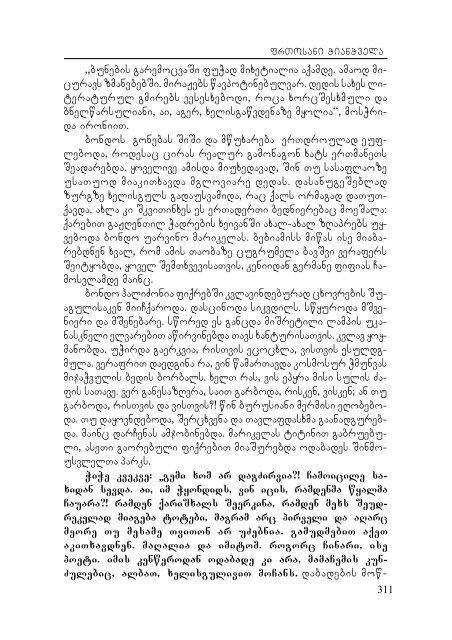 ფრთოსანი ჭიანჭველა
„ბუნების გარემოცვაში ფუჭად მიხეტიალია აქამდე. ამაოდ მი-
ცურავს ზმანებებში. მირაჟებს წაეპოტინებულვარ. დედის სახეს ლი-
ტერატურულ გმირებს ვუსესხებოდი, როცა ხორცშესხმული და
ბნელწარსულიანი, აი, აგერ, ხელისგაწვდენაზე მყოლია“, მოსჭრი-
და ირონიით.
ბონდოს გონებას შიში და მწუხარება ერთდროულად ეუფ-
ლებოდა, როდესაც ცირას რეალურ გამონაგონ ხატს ერთმანეთს
შეადარებდა. ყოველივე ამისდა მიუხედავად, შინ თუ სასაფლაოზე
უსათუოდ მიაკითხავდა მგლოვიარე დედას. დასანუგეშებლად
ზურგზე ხელისგულს გადაუსვამიდა, რაც ქალს ორმაგად დათუთ-
ქავდა. ახლა კი შკვითინხეს ეს ერთადერთი ბედნიერებაც მოეშალა:
ქარებით გაჟღენთილ ჭადრების ხეივანში ახალ-ახალ ზღაპრებს უყ-
ვებოდა ბონდო უარვინო მარიკელას. ბებიამისს მიწას ისე მიაბა-
რებდნენ ხვალ, რომ ამის თაობაზე ცუგრუმელა ბავშვი ვერაფერს
შეიტყობდა, ყოველ შემთხვევისათვის, კენიიდან გერმანე ფიფიას ჩა-
მოსვლამდე მაინც.
ბონდო ჰალიძონია ფიქრებში კვლავინდებურად ცხოვრების შუ-
აგულისაკენ მიიჩქაროდა. დასცინოდა სიკვდილს. სწყუროდა მშვე-
ნიერი და მშენებარე. სწორედ ეს განცდა მიშრეტილი ლამპის უკა-
ნასკნელი ელვარებით აწირვინებდა თავს ხანტურისათვის. კვლავ ყოყ-
მანობდა. უჭირდა გაერკვია, რისთვის ეცოცხლა, ვისთვის ესულდგ-
მულა. ვერაფრით დაედგინა რა, ვინ წამართავდა კოსმოსურ ჭმუნვას
მიჯაჭვულის ბედის ბორბალს. ხელთ რას, ვის ეპყრა მისი სულის ძა-
ფის სათავე. ვერ განესაზღვრა, საით გარბოდა, რისკენ, ვისკენ; ან თუ
გარბოდა, რისთვის და ვისთვის?! წინ ბურუსიანი მერმისი ეღობებო-
და. თუ დაყოვნდებოდა, შერცხვენა და თავლაფდასხმა გაანადგურებ-
და. მაინც დარჩენას ამჯობინებდა. მარიკელას ტიტინით გაბრუებუ-
ლი, ასეთი გაორებული ფიქრებით მიაშურებდა ოდაბადეს შინმო-
უსვლელთა პარკს.
ჭიჭე კვეკვე: „გემი ხომ არ დაგძირვია?! ჩამოიცილე სა-
ხიდან სევდა. აი, იმ ჭყონდიდს, ვინ იცის, რამდენმა წყალმა
ჩაუარა?! რამდენ ქარიშხალს შეერკინა, რამდენ მეხს შეუდ-
რეკელად მიაგება ტოტები, მაგრამ არც პირველი და აღარც
მეორე თუ მესამე თვითონ არ უძებნია. გამუდმებით აქეთ
აკითხავდნენ. მაღალია და იმიტომ. როგორც ჩინარი, ისე
პოეტი. იმის კენწეროდან ოდაბადე კი არა, მამაჩემის კუნ-
ძულებიც, ალბათ, ხელისგულივით მოჩანს. დაბადების მოწ-
311